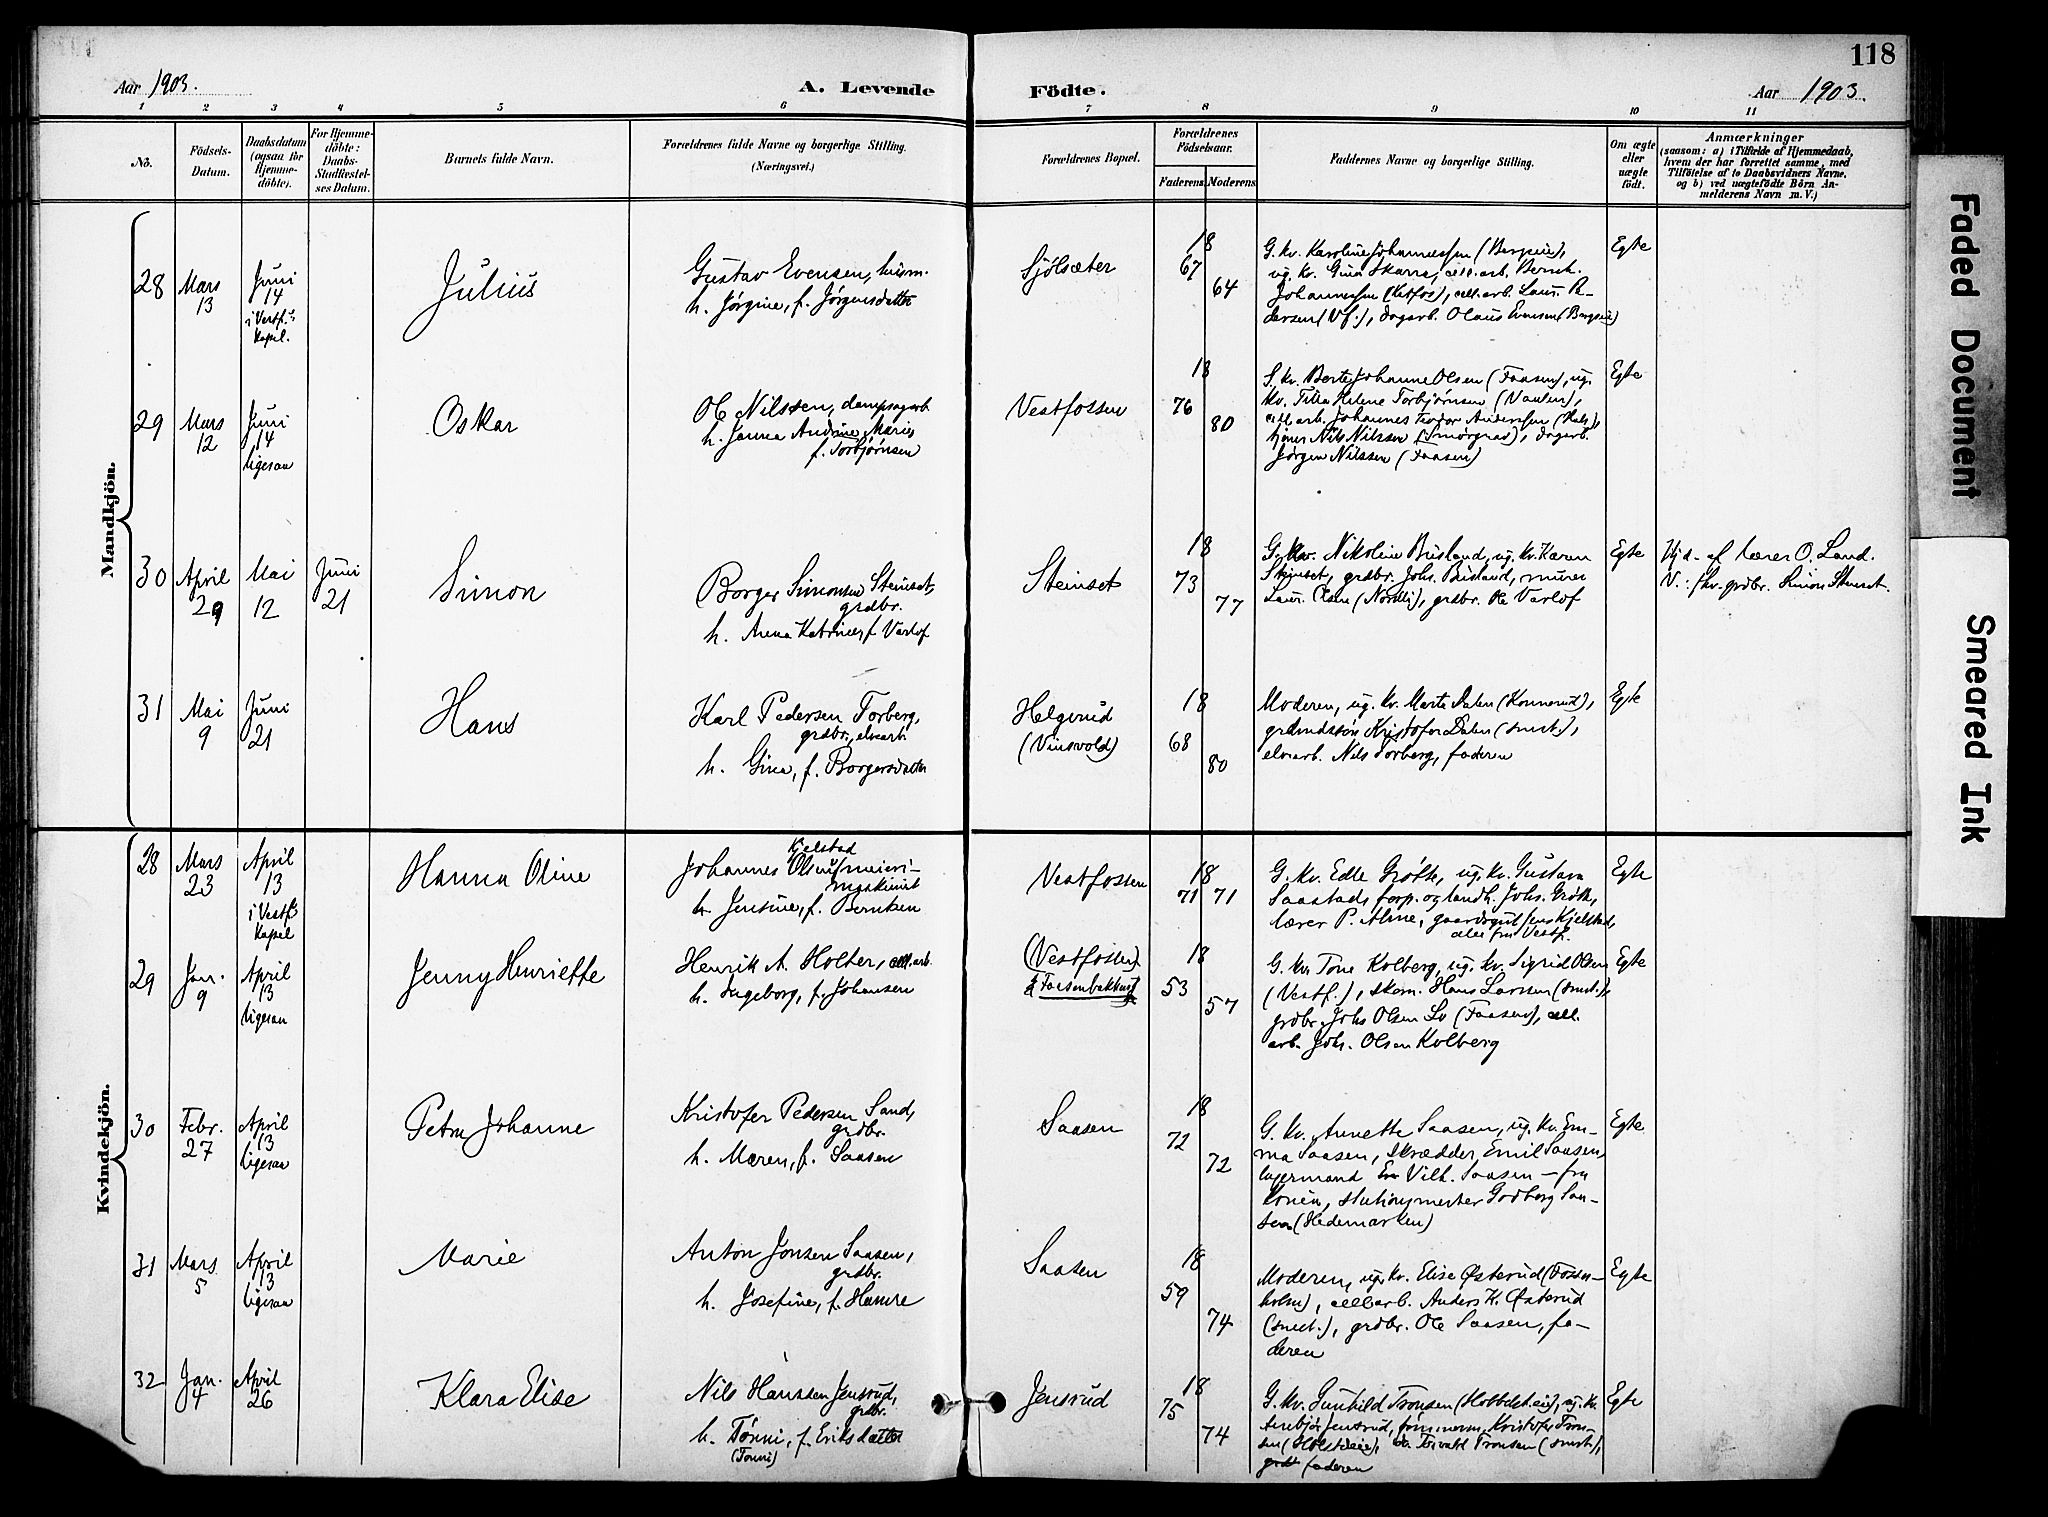 118
Aar 1903.
A. Levende Födte.
Aar 1903.
1 2 3 4 5 6 7 8 9 10 11
No.
Födsels-
Datum.
Daabsdatum
(ogsaa for
Hjemme-
döbte).
For Hjemme-
döbte:
Daabs-
Stadfæstel-
ses Datum.
Barnets fulde Navn.
Forældrenes fulde Navne og borgerlige Stilling.
(Næringsvei.)
Forældrenes Bopæl.
Forældrenes
Födselsaar.
Faderens Moderens
Faddernes Navne og borgerlige Stilling.
Om ægte
eller
uægte
födt.
Anmærkninger
(saasom: a) i Tilfælde af Hjemmedaab,
hvem der har forrettet samme, med
Tilföielse af to Daabsvidners Navne,
og b) ved uægtefödte Börn An-
melderens Navn m. V.)
Mandkjön.
28
Mars
13
Juni
14
i Vestf.s
Kapel.
Julius
Gustav Evensen, husm.
h. Jørgine, f. Jørgensdatter
Sjölsæter
18
67
64
G. kv. Karoline Johannessen (Bergseie),
ug. kv. Gina Skarra, cell. arb. Bernh.
Johannessen (Vestfos), cell. arb. Laur. P-
dersen (Vf.), dagarb. Olaus Evensen (Bergseie)
Egte
29
Mars
12
Juni
14
ligesaa
Oskar
Ole Nilssen, dampsagarb.
h. Janna Andrine Marie,
f. Torbjørnsen
Vestfossen
18
76
80
G. kv. Berte Johanne Olsen (Faasen), ug.
kv. Tilla Helene Torbjørnsen
cell. arb. Johannes Teodor Anderssen
Nils Nilssen (Smørgrav), dagarb.
Jørgen Nilssen (Faasen)
Egte
30
April
29
Mai
12
Juni
21
Simon
Borger Simonsen Steinset,
grdbr.
h. Anna Katrine, f. Varlof
Steinset
18
73
77
G. kv. Nikoline Busland, ug. kv. Karen
Steinset, grdbr. Johs. Busland, murer
Laur. Olsen (Nordli), grdbr. Ole Varlof
Egte
Hjd. af lærer O. Land.
V.: fkv. grdbr. Simon Steinset.
31
Mai
9
Juni
21
Hans
Karl Pedersen Torberg,
grdbr., elvearb.
h. Gina, f. Borgersdatter
Helgerud
(Vinsvold)
18
68
80
Moderen, ug. kv. Marta Dalen (Konnerud),
grdmandssøn Kristofer Dalen (smst.),
elvearb. Nils Torberg, faderen
Egte
Kvindekjön.
28
Mars
23
April
13
i Vestfs
Kapel
Hanna Oline
Kjelstad
Johannes Olsen, meieri-
maskinist
h. Jensine, f. Berntsen
Vestfossen
18
71 71
G. kv. Edle Grøtte, ug. kv. Gustava
Saastad, forp. og landh. Johs. Grøtte,
lærer P. Alme, gaardsgut Jens Kjelstad,
alle fra Vestf.
Egte
29
Jan.
9
April
13
ligesaa
Jenny Henriette
Henrik A. Holter, cell. arb.
h. Ingeborg, f. Johansen
(Vestfossen)
18
53
57
G. kv. Tone Kolberg, ug. kv. Sigrid Olsen
(Vestf.), skom. Hans Larsen (smst.),
grdbr. Johs Olsen Lv (Faasen), cell.
arb. Johs. Olsen Kolberg
Egte
30
Febr.
27
April
13
ligesaa
Petra Johanne
Kristofer Pedersen Sand,
grdbr.
h. Maren, f. Saasen
Saasen
18
72
72
G. kv. Annette Saasen, ug. kv. Em-
ma Saasen, skrædder Emil Saasen,
lagermand Vilh. Saasen – fra
stationsmester Godberg Saa-
sen (Hedemarken)
Egte
31
Mars
5
April
13
ligesaa
Marie
Anton Jonsen Saasen,
grdbr.
h. Josefine, f. Hamre
Saasen
18
59
74
Moderen, ug. kv. Elise Østerud (Fossn-
holm), cellarb. Anders K. Østerud
(smst.), grdbr. Ole Saasen, fa-
deren
Egte
32
Jan.
4
April
26
Klara Elise
Nils Hanssen Jensrud,
grdbr.
h. Tønni, f. Eriksdatter
(Tonni)
Jensrud
18
75
74
G. kv. Gunhild Tronsen, ug. kv.
Anebjør Jensrud, tømmerm. Kristofer Tron-
sen, Torvald Tronsen (smst.),
faderen
Egte
Faded Document
Smeared Ink